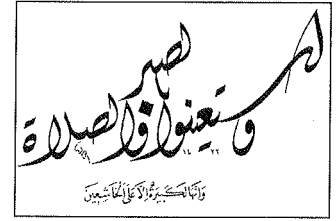 واستعينوا بالصبر والصلاة
١٤ ٢٢
وَإِنَّهَا لَكَبِيرَةٌ إِلَّا عَلَى الْخَاشِعِينَ